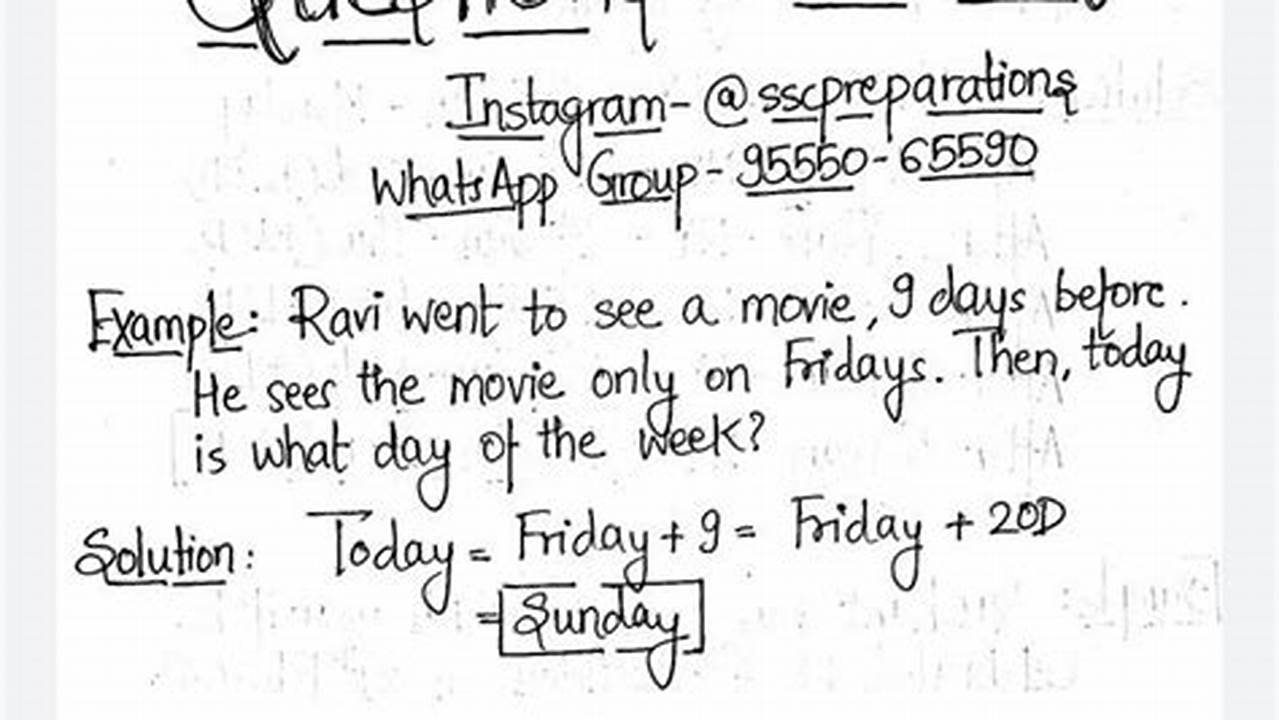 Instagram - @sscpreparations
WhatsApp Group - 95550-65590
Example: Ravi went to see a movie, 9 days before.
He sees the movie only on Fridays. Then, today
is what day of the week?
Solution: Today = Friday + 9 = Friday + 2OD
= Sunday